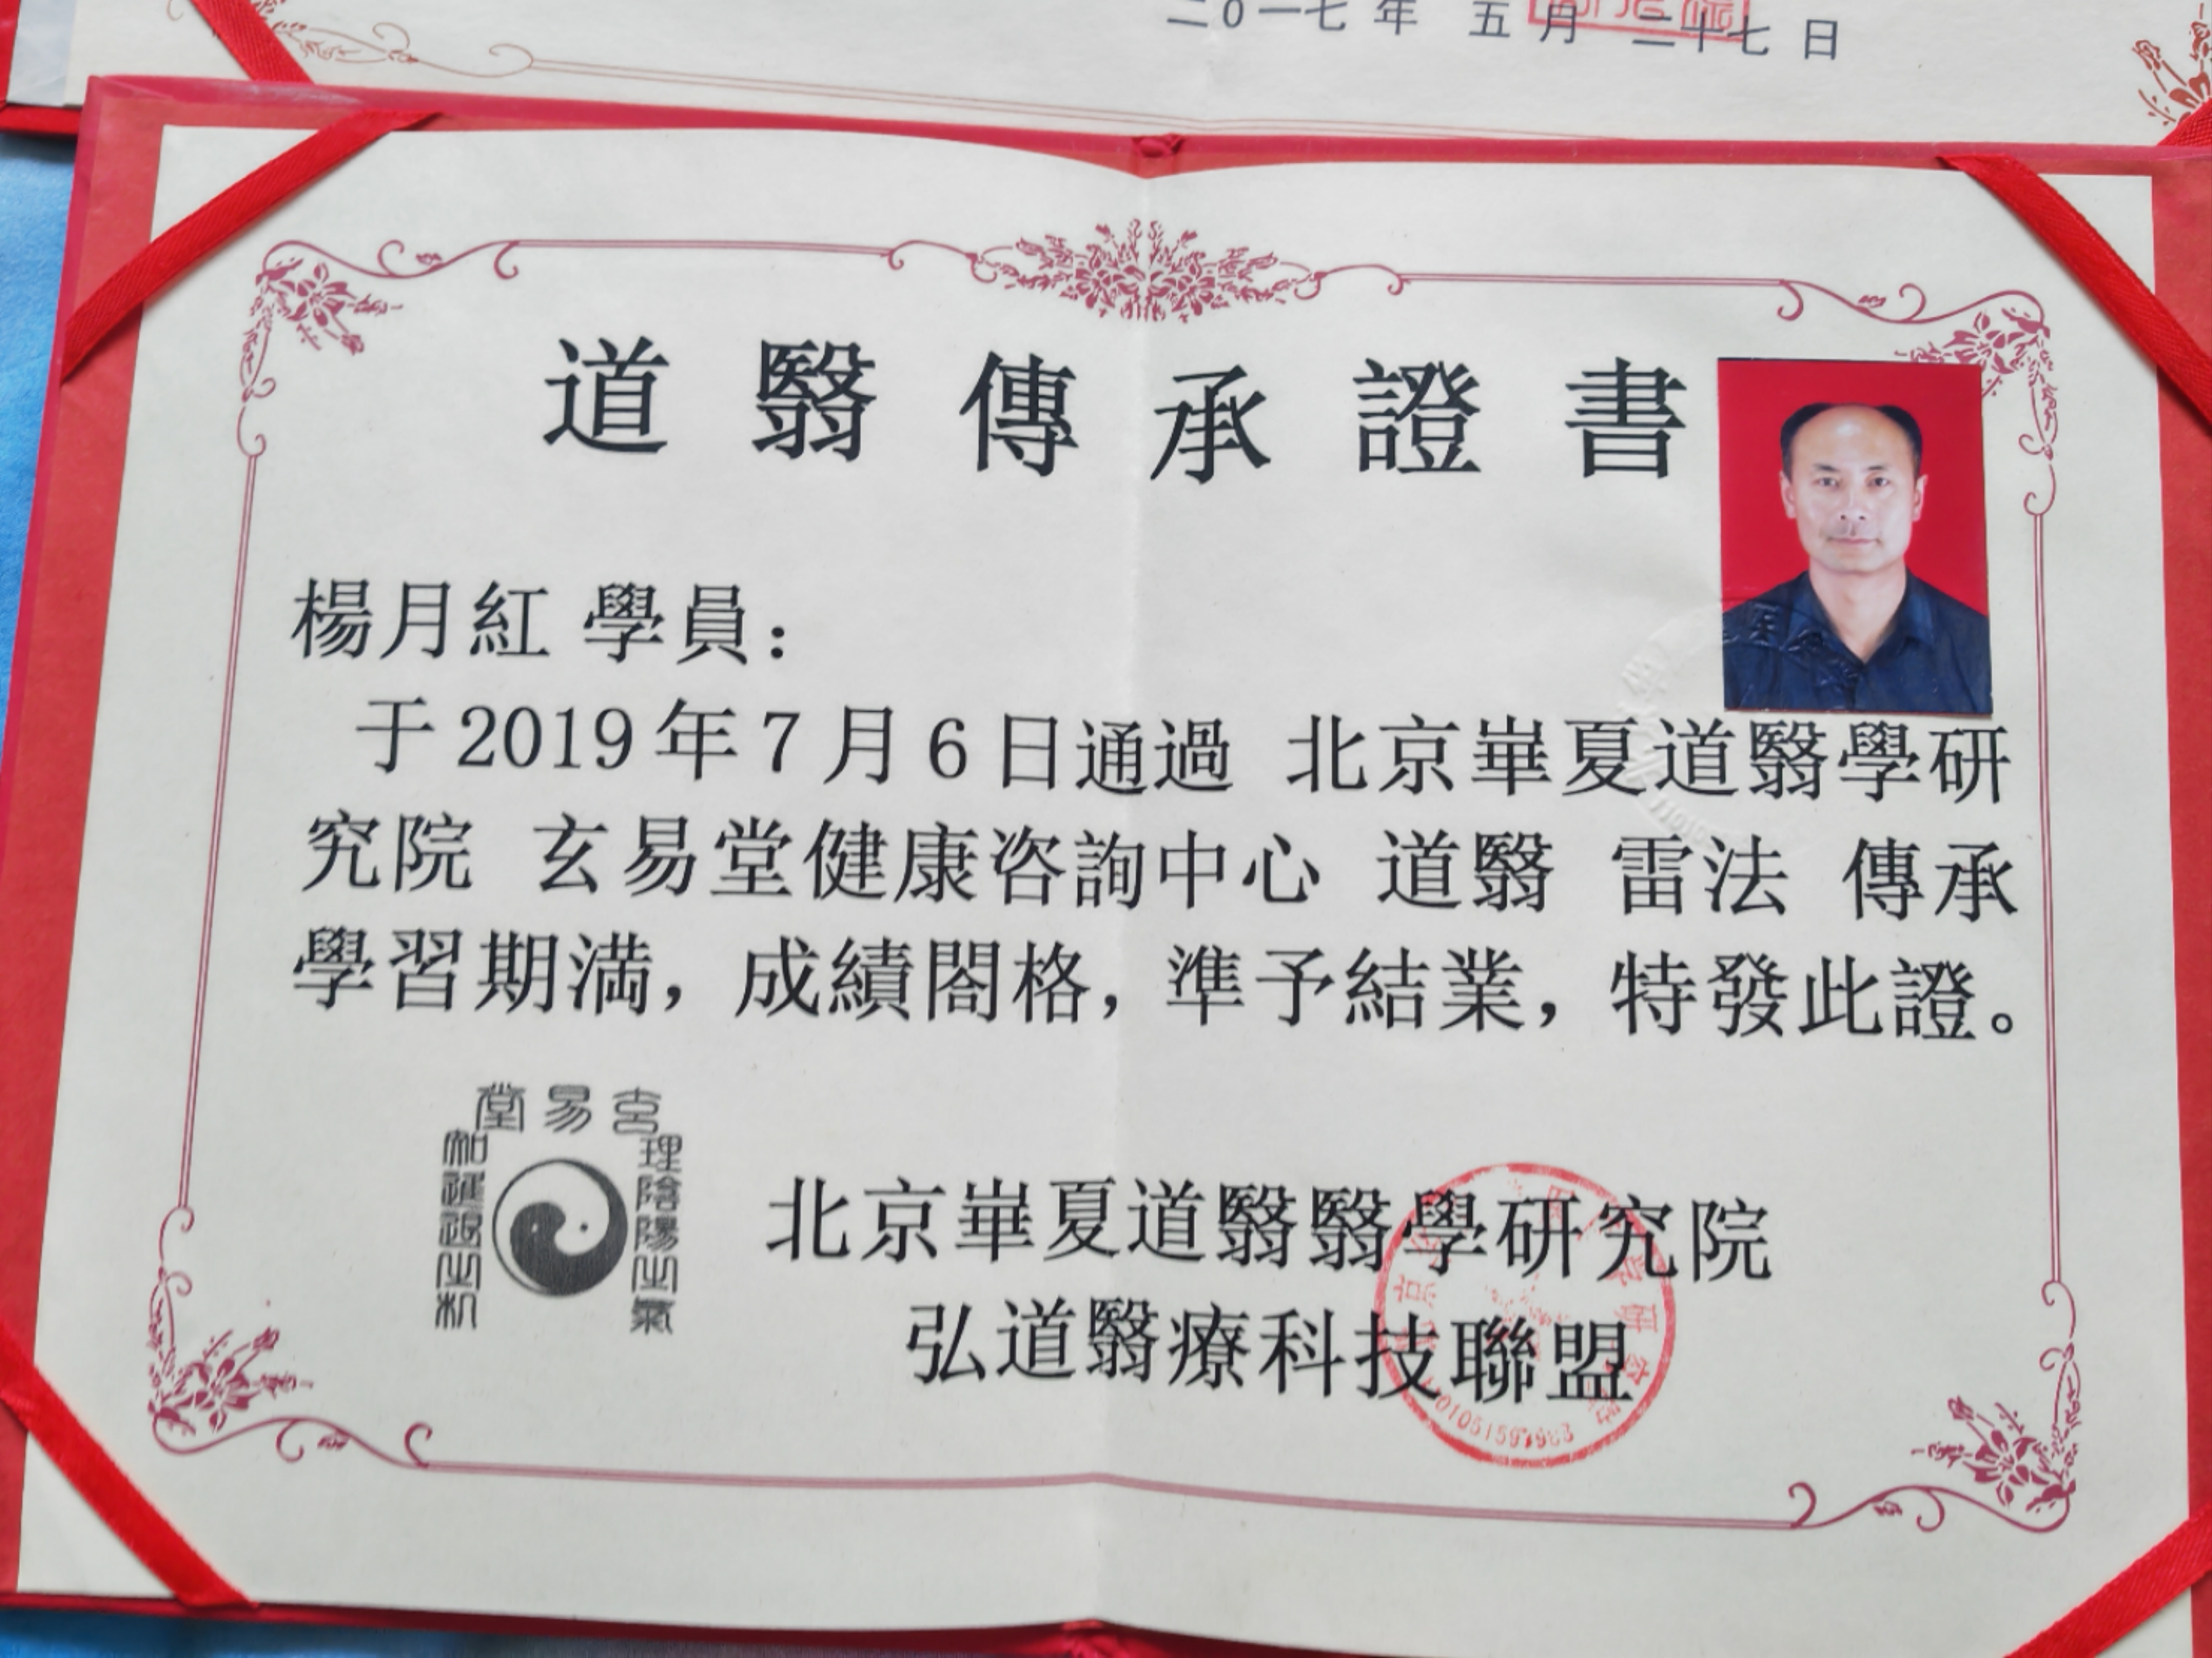 二0一七 年 五 月 二十七 日
道 翳 傳 承 證 書
楊月紅 學員：
于2019年7月6日通過 北京崋夏道翳學研
究院 玄易堂健康咨詢中心 道翳 雷法 傳承
學習期満，成績閤格，準予結業，特發此證。
堂易玄
理陰陽之氣
北京崋夏道翳翳學研究院
弘道翳療科技聯盟